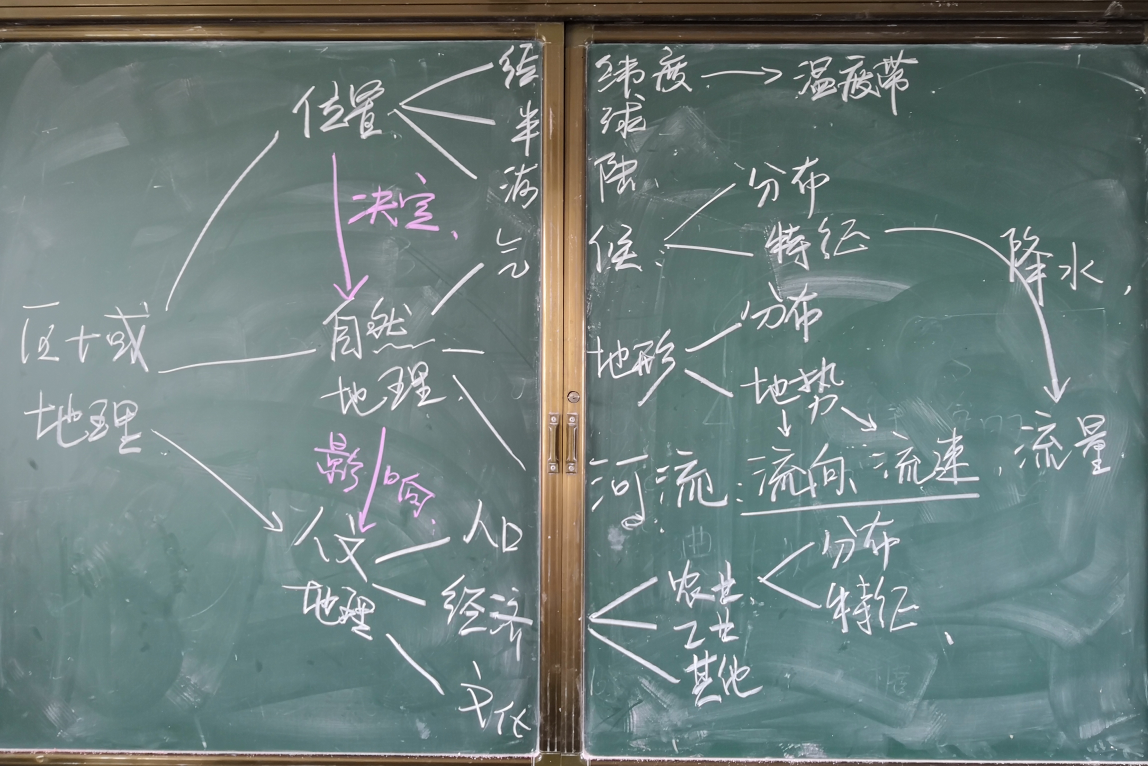 位置
经纬度 → 温度带
半球
海陆
决定
气候
分布
特征
降水
区域
地理
自然
地理
地形
分布
地势
影响
河流：流向、流速、流量
人文
地理
人口
经济
农业
分布
特征
工业
其他
文化